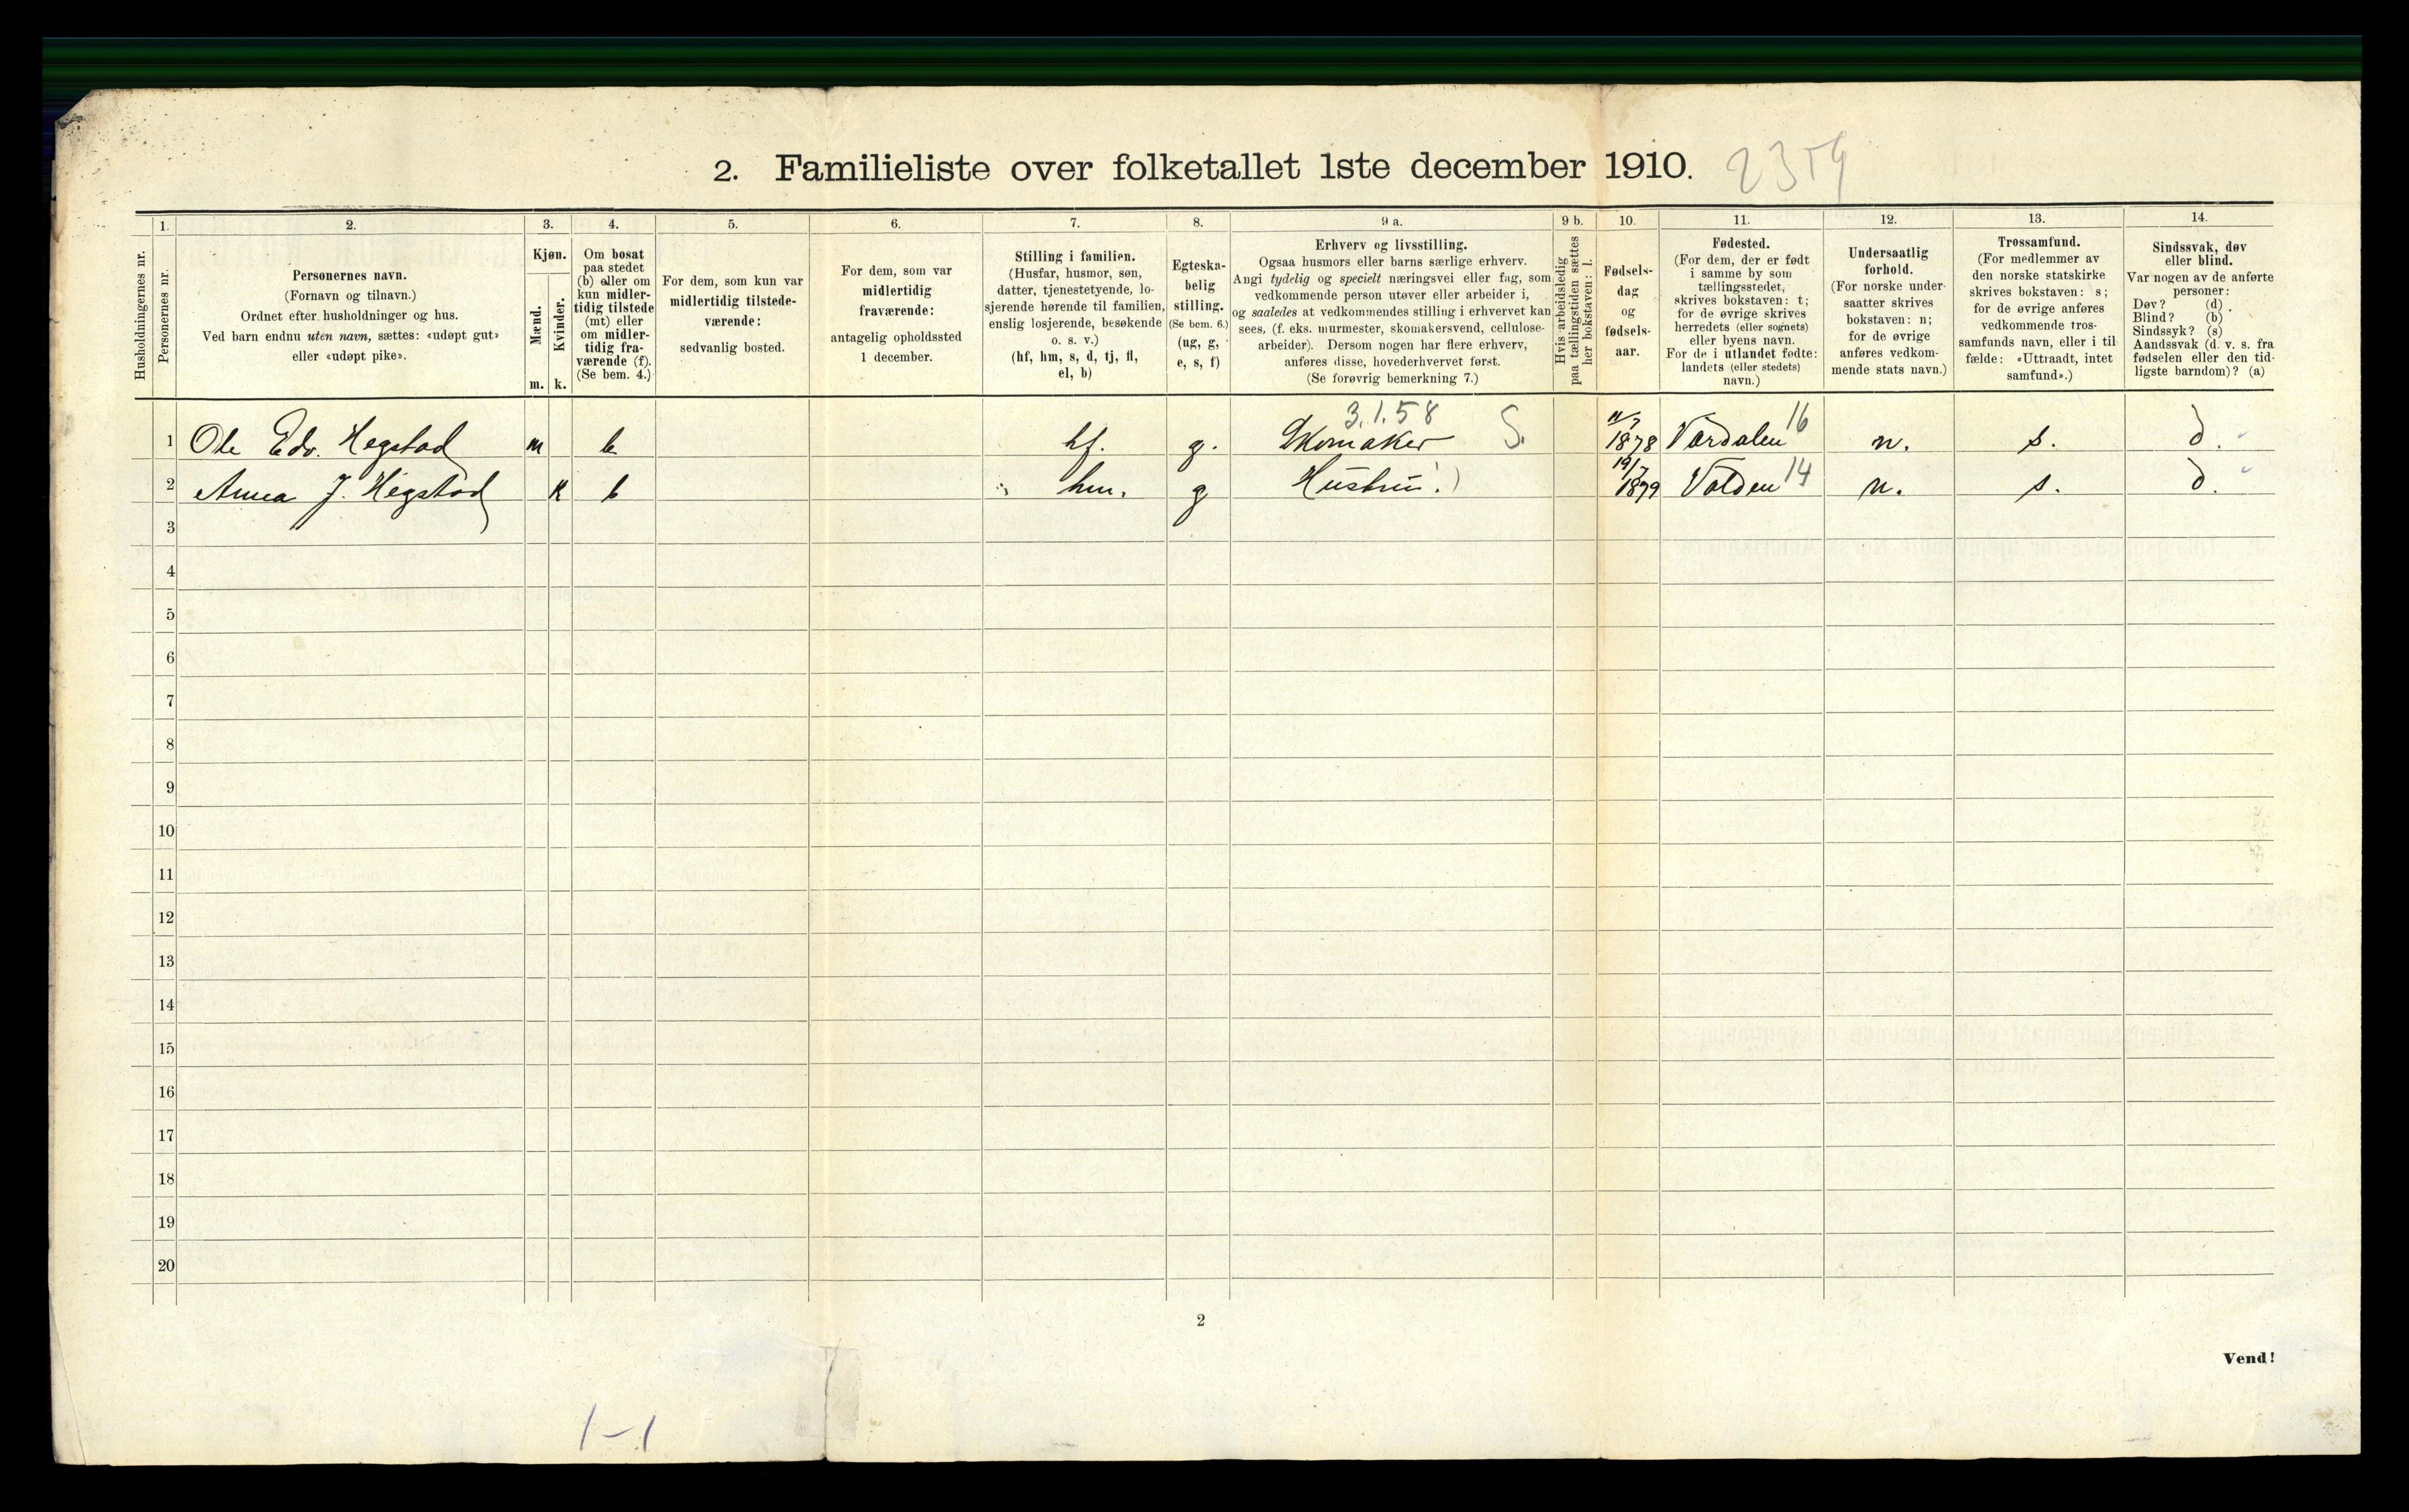 2. Familieliste over folketallet 1ste december 1910. 2359
Husholdningernes nr.
1.
Personernes nr.
2.
Personernes navn.
(Fornavn og tilnavn.)
Ordnet efter husholdninger og hus.
Ved barn endnu uten navn, sættes: «udøpt gut»
eller «udøpt pike».
3.
Kjøn.
Mænd.
Kvinder.
m. k.
4.
Om bosat
paa stedet
(b) eller om
kun midler-
tidig tilstede
(mt) eller
om midler-
tidig fra-
værende (f).
(Se bem. 4.)
5.
For dem, som kun var
midlertidig tilstede-
værende:
sedvanlig bosted.
6.
For dem, som var
midlertidig
fraværende:
antagelig opholdssted
1 december.
7.
Stilling i familien.
(Husfar, husmor, søn,
datter, tjenestetyende, lo-
sjerende hørende til familien,
enslig losjerende, besøkende
o. s. v.)
(hf, hm, s, d, tj, fl,
el, b)
8.
Egteska-
belig
stilling.
(Se bem. 6.)
(ug, g,
e, s, f)
9 a.
Erhverv og livsstilling.
Ogsaa husmors eller barns særlige erhverv.
Angi tydelig og specielt næringsvei eller fag, som
vedkommende person utøver eller arbeider i,
og saaledes at vedkommendes stilling i erhvervet kan
sees, (f. eks. murmester, skomakersvend, cellulose-
arbeider). Dersom nogen har flere erhverv,
anføres disse, hovederhvervet først.
(Se forøvrig bemerkning 7.)
9 b.
Hvis arbeidsledig
paa tællingstiden sættes
her bokstaven: l.
10.
Fødsels-
dag
og
fødsels-
aar.
11.
Fødested.
(For dem, der er født
i samme by som
tællingsstedet,
skrives bokstaven: t;
for de øvrige skrives
herredets (eller sognets)
eller byens navn.
For de i utlandet fødte:
landets (eller stedets)
navn.)
12.
Undersaatlig
forhold.
(For norske under-
saatter skrives
bokstaven: n;
for de øvrige
anføres vedkom-
mende stats navn.)
13.
Trossamfund.
(For medlemmer av
den norske statskirke
skrives bokstaven: s;
for de øvrige anføres
vedkommende tros-
samfunds navn, eller i til-
fælde: «Uttraadt, intet
samfund».)
14.
Sindssvak, døv
eller blind.
Var nogen av de anførte
personer:
Døv? (d)
Blind? (b)
Sindssyk? (s)
Aandssvak (d. v. s. fra
fødselen eller den tid-
ligste barndom)? (a)
3.1.58
1 Ole Edv. Hegstad m b hf. g. Skomaker S. 11/7 1878 Værdalen 16 n. s. d.
2 Anna J. Hegstad k b hm. g Hustru 19/7 1879 Volden 14 n. s. d.
3
4
5
6
7
8
9
10
11
12
13
14
15
16
17
18
19
20
2
Vend!
1-1